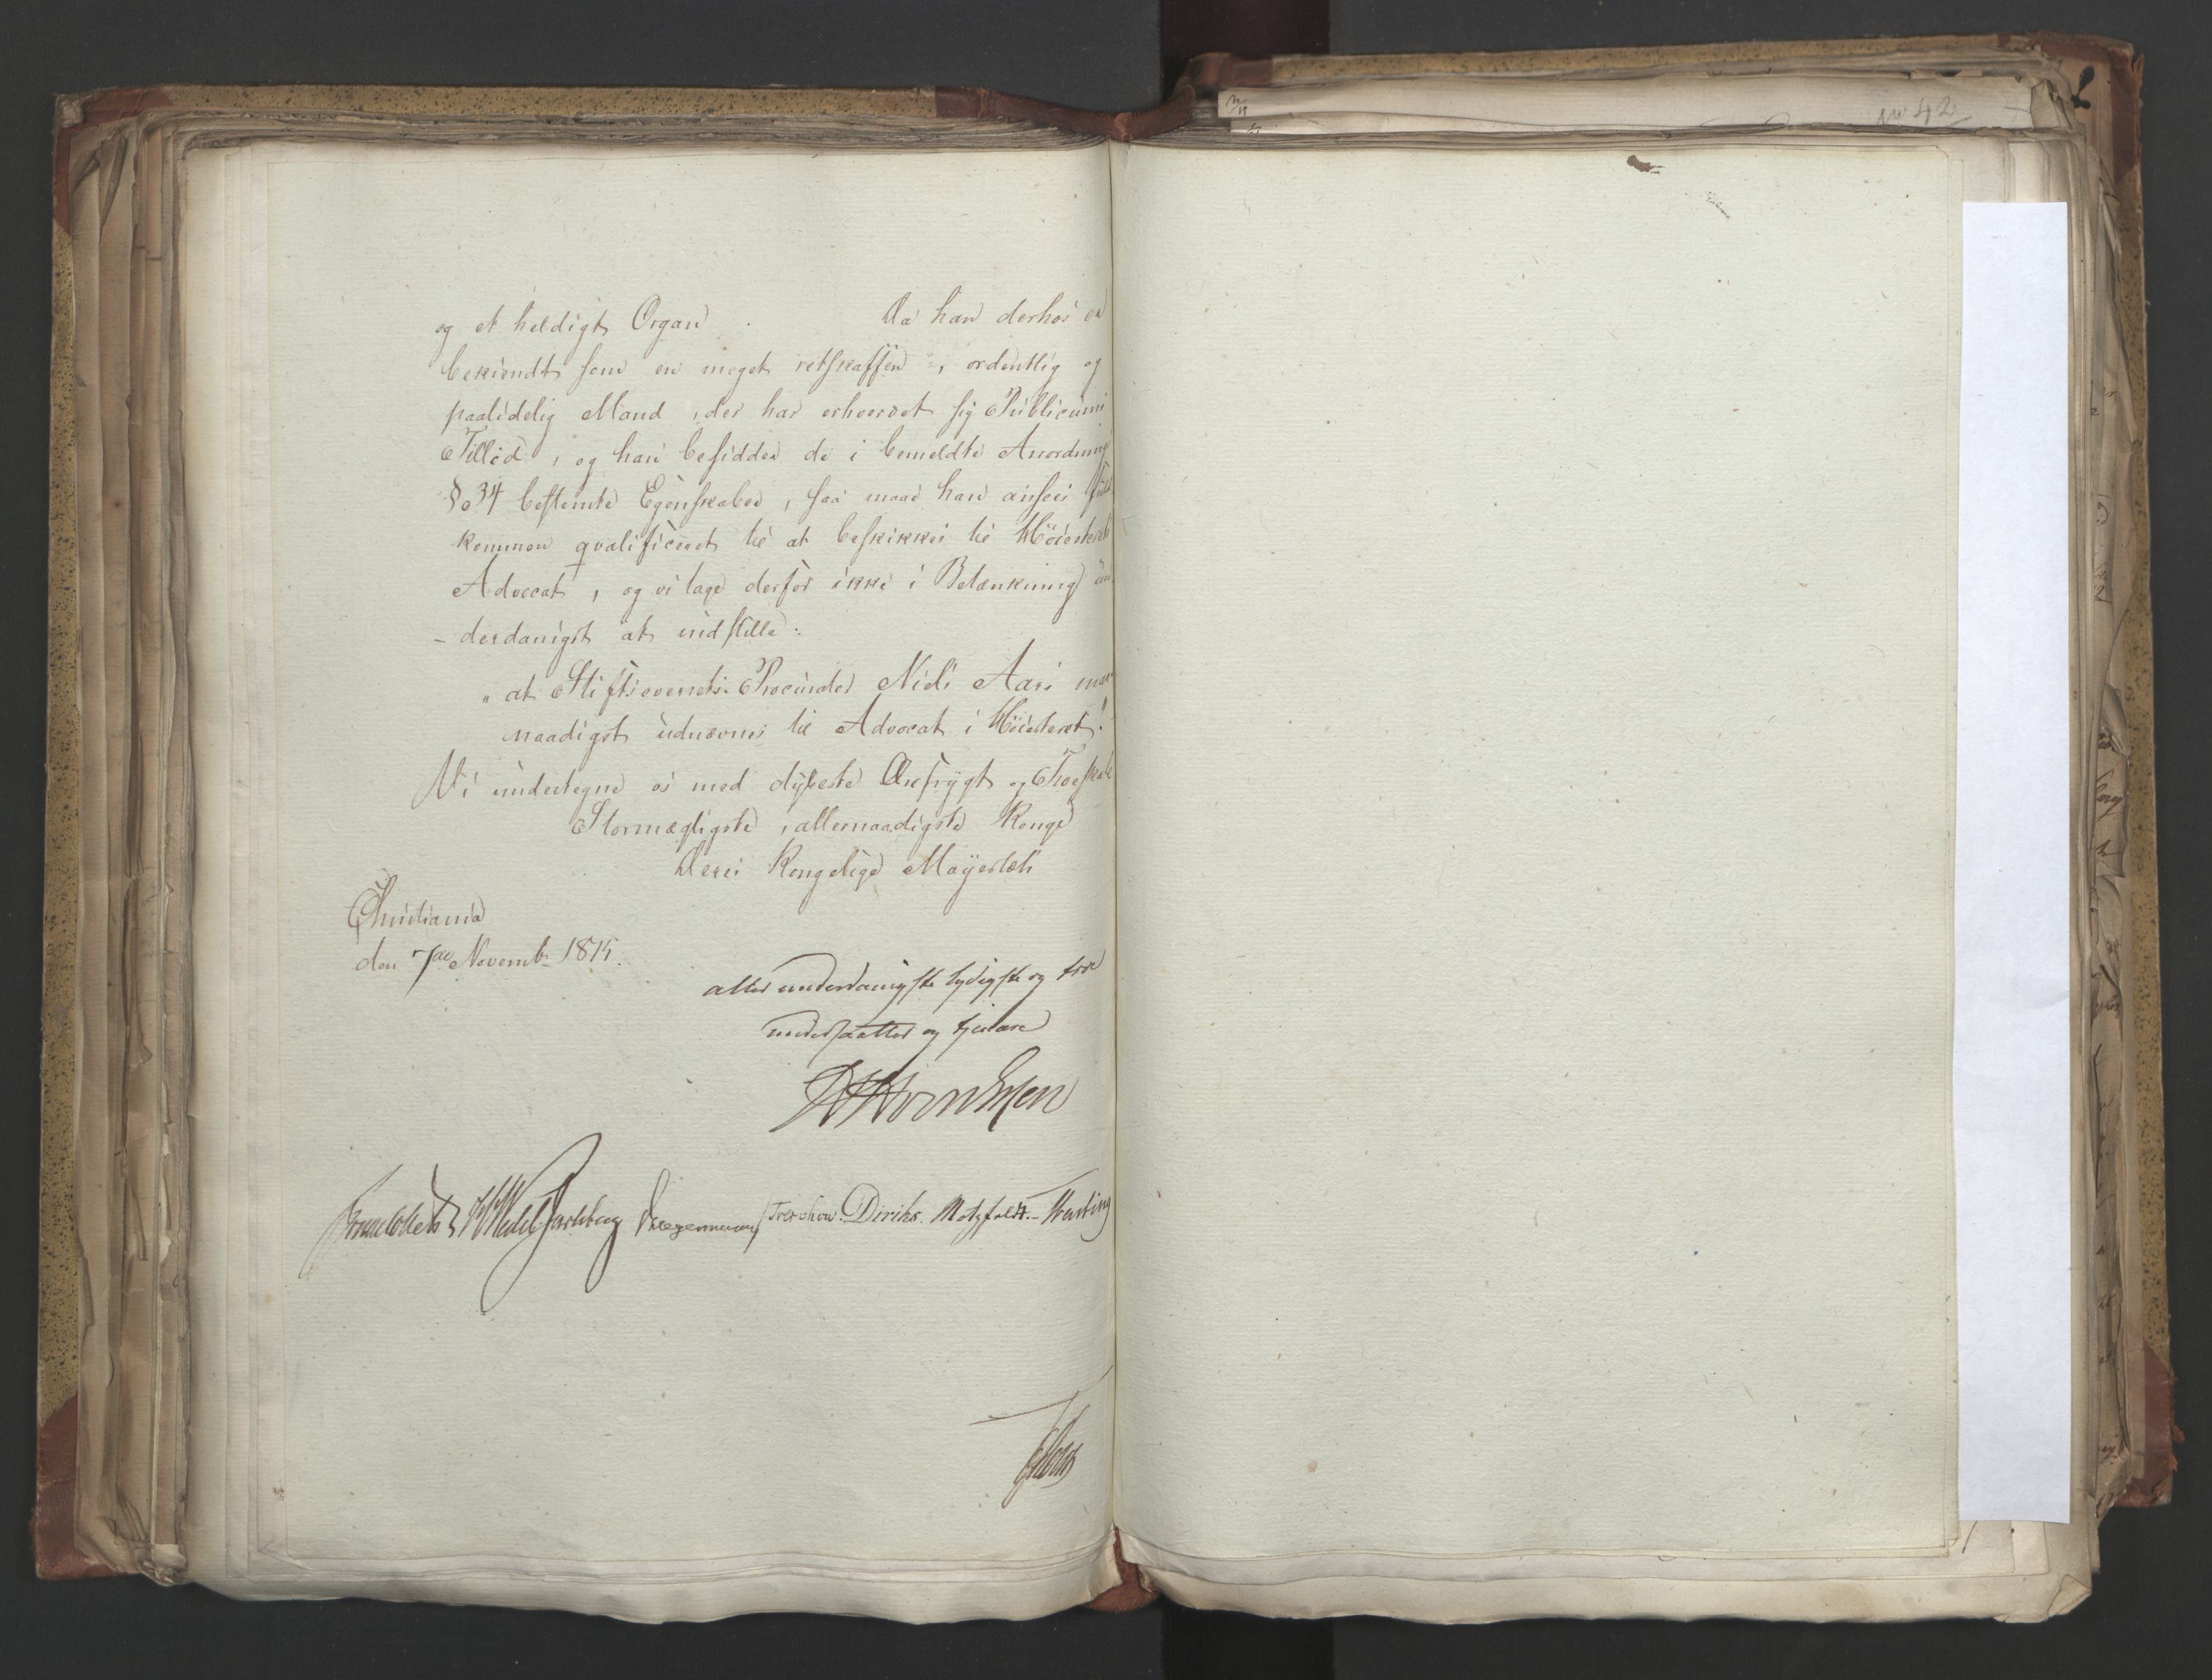 No 42
og et heldigt Organ. Da han derhos er
bekiendt som en meget retskaffen, ordentlig og
paalidelig Mand, der har erhvervet sig Publicums
Tillid, og han besidder de i bemeldte Anordning
§o 34 bestemte Egenskaber, saa maae han ansees fuld
kommen qvalificeret til at beskikkes til Höiesterets
Advocat, og vi tage derfor ikke i Betænkning un
- derdanigst at indstille:
"at Stiftsoverrets-Procurator Niels Aars
naadigst udnævnes til Advocat i Höiesteret."
Vi undertegne os med dybeste Ærefrygt og Troeskab
Stormægtigste, allernaadigste Konge
Deres Kongelige Mayestæts
Christiania
den 7de Novembr 1815.
aller underdanigste lydigste og troe
undersaatter og tjenere
Sommerhielm Wedel Jarlsberg Kragemann Treschow. Diriks. Motzfeldt.